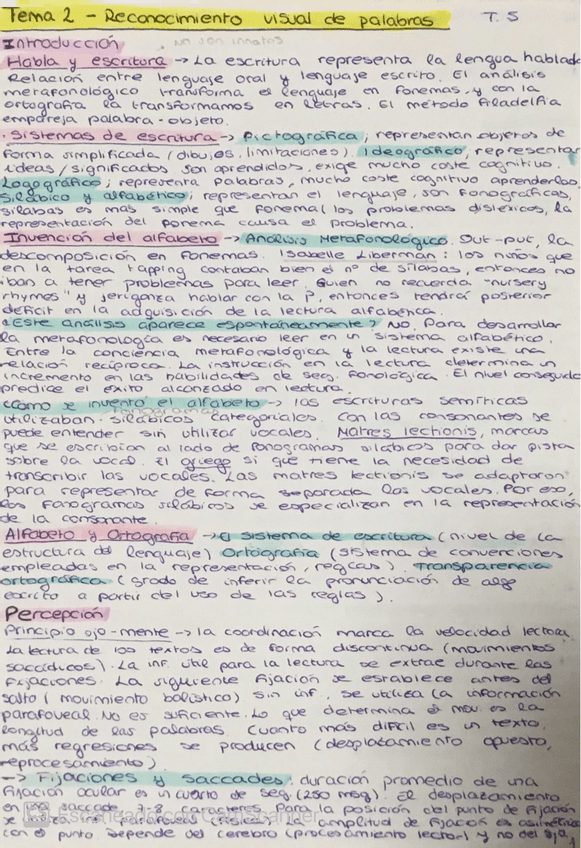 Tema 2 - Reconocimiento visual de palabras T. 5
Introducción no son innatos
Habla y escritura → La escritura representa la lengua hablada
Relación entre lenguaje oral y lenguaje escrito. El análisis
metafonológico transforma el lenguaje en fonemas y con la
ortografía la transformamos en letras. El método Filadelfia
empareja palabra - objeto.
· Sistemas de escritura → Pictográfica, representan objetos de
forma simplificada (dibujos, limitaciones). Ideográfico, representar
ideas / significados son aprendidos, exige mucho coste cognitivo.
Logográfico; representa palabras, mucho coste cognitivo aprenderlas
Silábico y alfabético; representan el lenguaje, son fonográficas,
sílabas es más simple que fonemas (los problemas disléxicos, la
representación del fonema causa el problema.
Invención del alfabeto → Análisis Metafonológico. Out-put, la
descomposición en fonemas. Isabelle Liberman: los niños que
en la tarea tapping contaban bien el nº de sílabas, entonces no
iban a tener problemas para leer. Quien no recuerda "nursery
rhymes" y jeringonza hablar con la p, entonces tendrá posterior
déficit en la adquisición de la lectura alfabética.
¿Este análisis aparece espontáneamente? NO. Para desarrollar
la metafonología es necesario leer en un sistema alfabético.
Entre la conciencia metafonológica y la lectura existe una
relación recíproca. La instrucción en la lectura determina un
incremento en las habilidades de seg. Fonológica. El nivel conseguido
predice el éxito alcanzado en lectura.
¿Cómo se inventó el alfabeto → las escrituras semíticas
utilizaban silábicos categoriales. Con las consonantes se
puede entender sin utilizar vocales. Matres lectionis, marcas
que se escribían al lado de fonogramas silábicos para dar pista
sobre la vocal. El griego si que tiene la necesidad de
transcribir las vocales. Las matres lectionis se adaptaron
para representar de forma separada las vocales. Por eso,
los fonogramas silábicos se especializan en la representación
de la consonante.
Alfabeto y Ortografía → El sistema de escritura (nivel de la
estructura del lenguaje) Ortografía (sistema de convenciones
empleadas en la representación, reglas). Transparencia
ortográfica (grado de inferir la pronunciación de algo
escrito a partir del uso de las reglas).
Percepción
Principio ojo-mente → la coordinación marca la velocidad lectora.
La lectura de los textos es de forma discontinua (movimientos
saccádicos). La inf. útil para la lectura se extrae durante las
fijaciones. La siguiente fijación se establece antes del
salto (movimiento balístico) sin inf. Se utiliza la información
parafoveal. No es suficiente. Lo que determina el mov. es la
longitud de las palabras. Cuanto más difícil es un texto,
más regresiones se producen (desplazamiento opuesto,
reprocesamiento)
→ Fijaciones y saccades; duración promedio de una
fijación ocular es un cuarto de seg (250 msg). El desplazamiento
en una saccade 7-8 caracteres. Para la posición del punto de fijación
amplitud de fijación es asimétrica
con el punto. Depende del cerebro (procesamiento lector) y no del ojo.